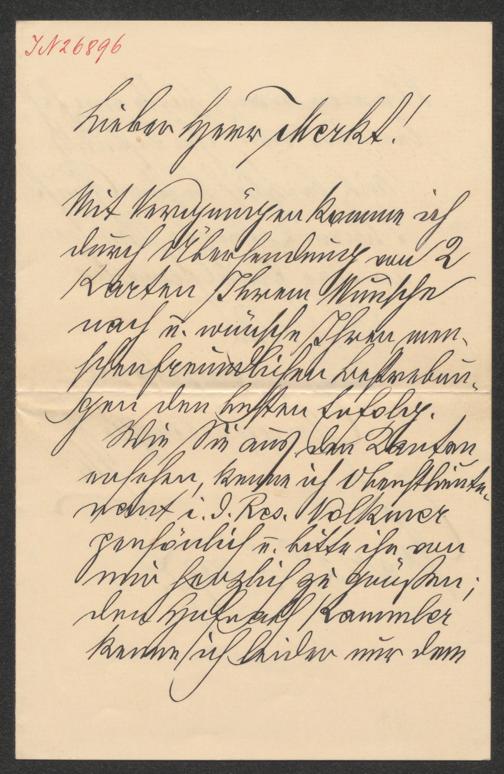 IN 26896
Lieber Herr Merkt!
Mit Vergnügen komme ich
durch Übersendung von 2
Karten Ihrem Wunsche
nach u. wünsche Ihren men-
schenfreundlichen Bestrebun-
gen den besten Erfolg.
Wie Sie aus den Karten
ersehen, kenne ich Oberstlieute-
nant i. d. Res. Volkmer
persönlich u. bitte ihn von
mir herzlich zu grüßen;
den Hofrath Kammler
kenne ich leider nur dem